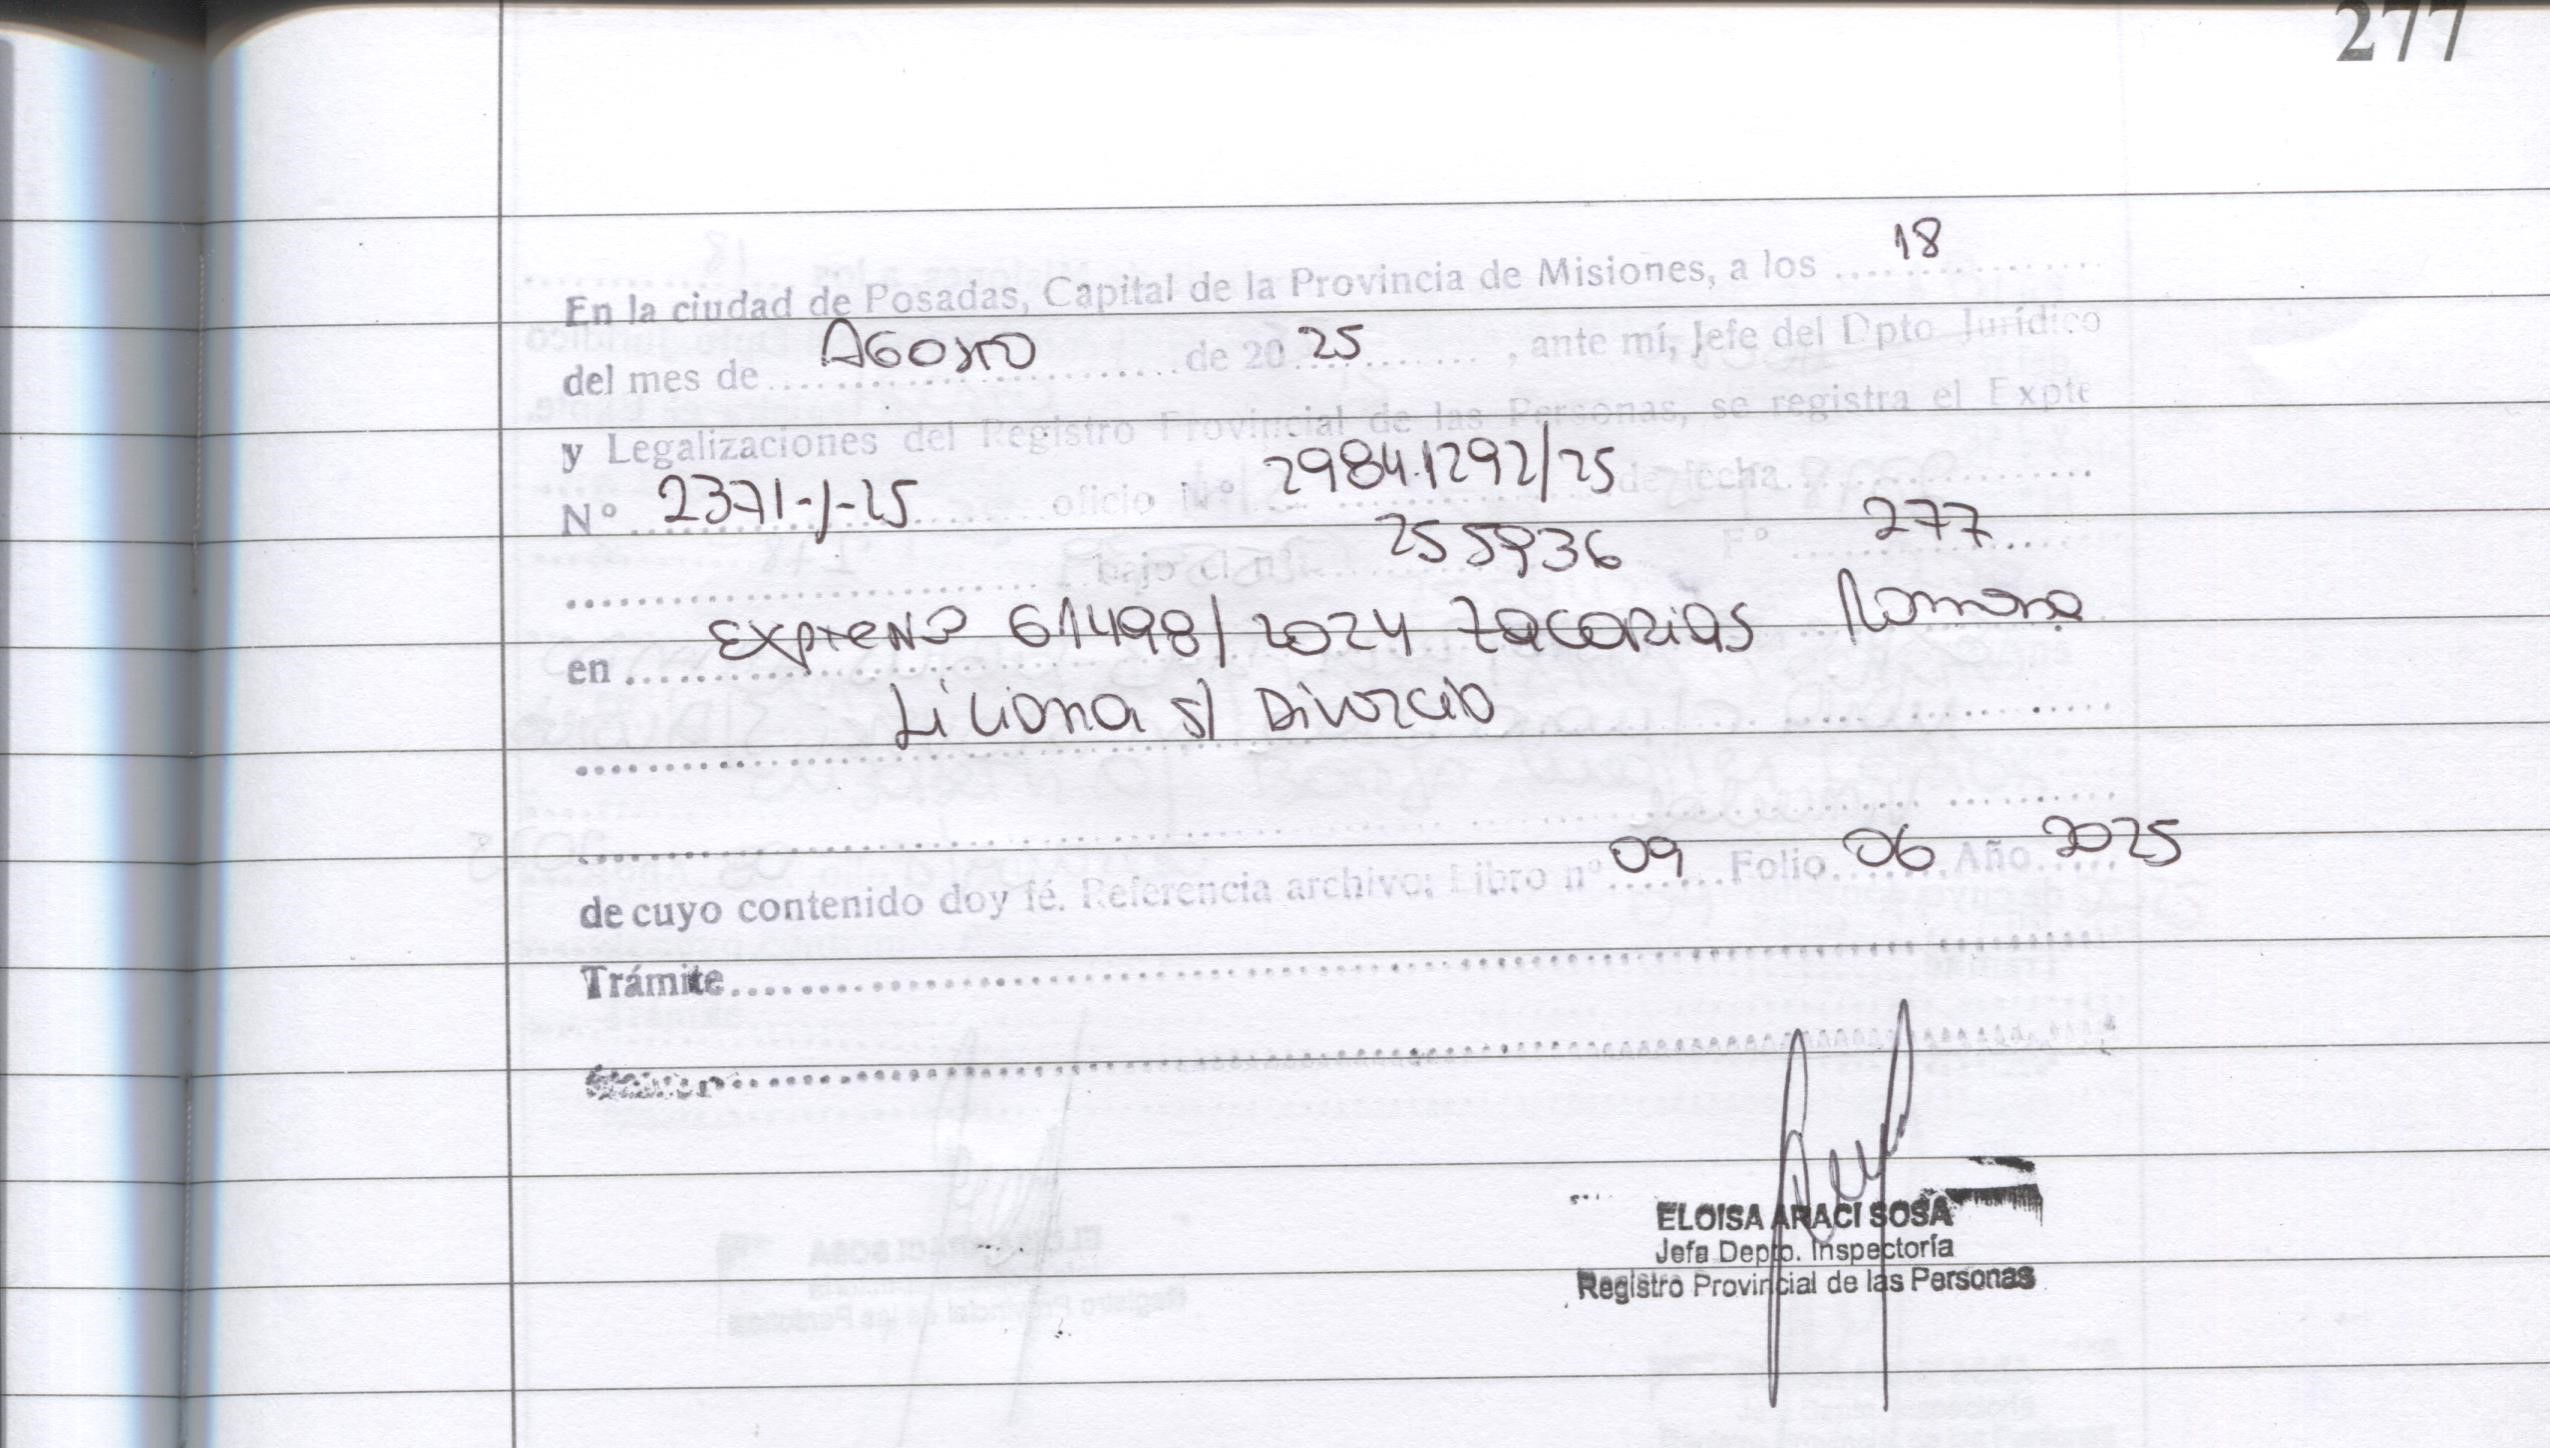 277
En la ciudad de Posadas, Capital de la Provincia de Misiones, a los 18
del mes de Agosto de 2025, ante mí, Jefe del Dpto. Jurídico
y Legalizaciones del Registro Provincial de las Personas, se registra el Expte
N° 2371-J-25 oficio N° 2984.1292/25 de fecha
bajo el n° 255936 F° 277
en Expte N° 61498/2024 Zacarias Ramona
Liliana s/ Divorcio
de cuyo contenido doy fé. Referencia archivo: Libro n° 09 Folio 06 Año 2025
Trámite
ELOISA ARACI SOSA
Jefa Depto. Inspectoría
Registro Provincial de las Personas